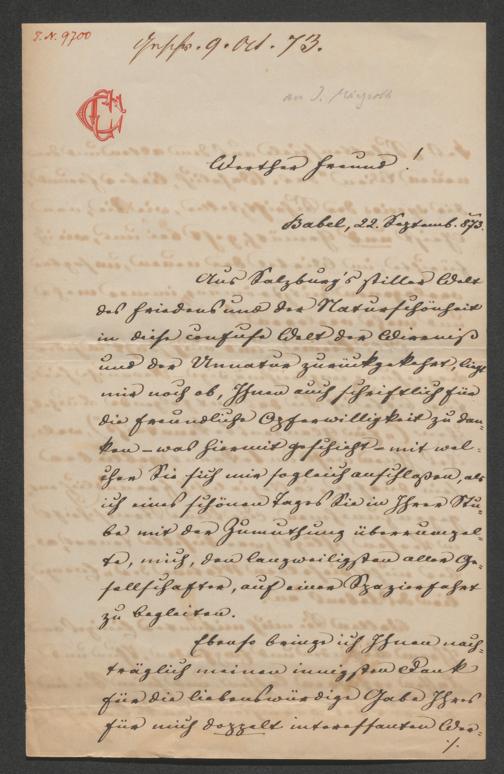 I. N. 9700
9. Oct. 73.
an J.
Werther Freund!
Babel, 22. Septemb. 873.
Aus Salzburg's stiller Welt
des Friedens und der Naturschönheit
in diese confuse Welt der Wirrniß
und der Unnatur zurückgekehrt, liegt
mir noch ob, Ihnen auch schriftlich für
die freundliche Opferwilligkeit zu dan-
ken – was hiermit geschieht – mit wel-
cher Sie sich mir sogleich anschloßen, als
ich eines schönen Tages Sie in Ihrer Stu-
be mit der Zumuthung überrumpel-
te, mich, den langweiligsten aller Ge-
sellschafter, auf einer Spazierfahrt
zu begleiten.
Ebenso bringe ich Ihnen nach-
träglich meinen innigsten Dank
für die liebenswürdige Gabe Ihres
für mich doppelt interessanten Wer-
./.